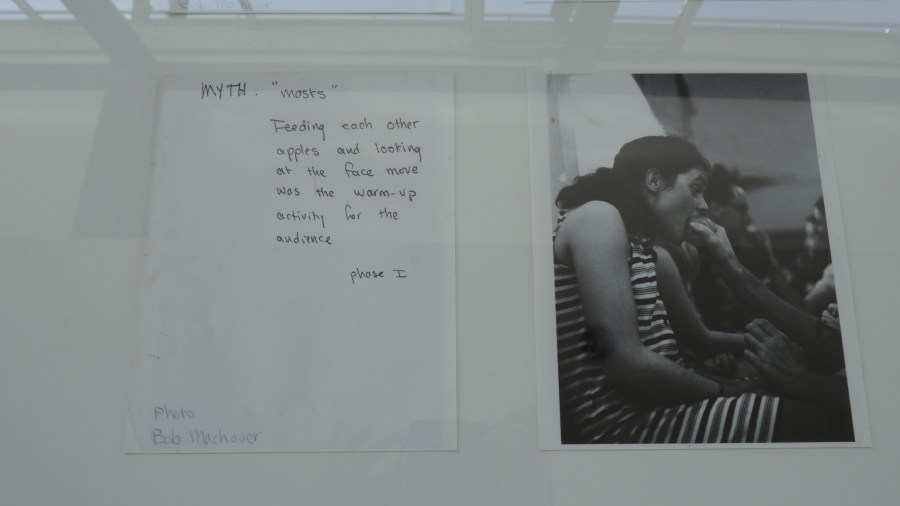 MYTH. "masks"
Feeding each other
apples and looking
at the face move
was the warm-up
activity for the
audience
phase I
Photo
Bob Machover